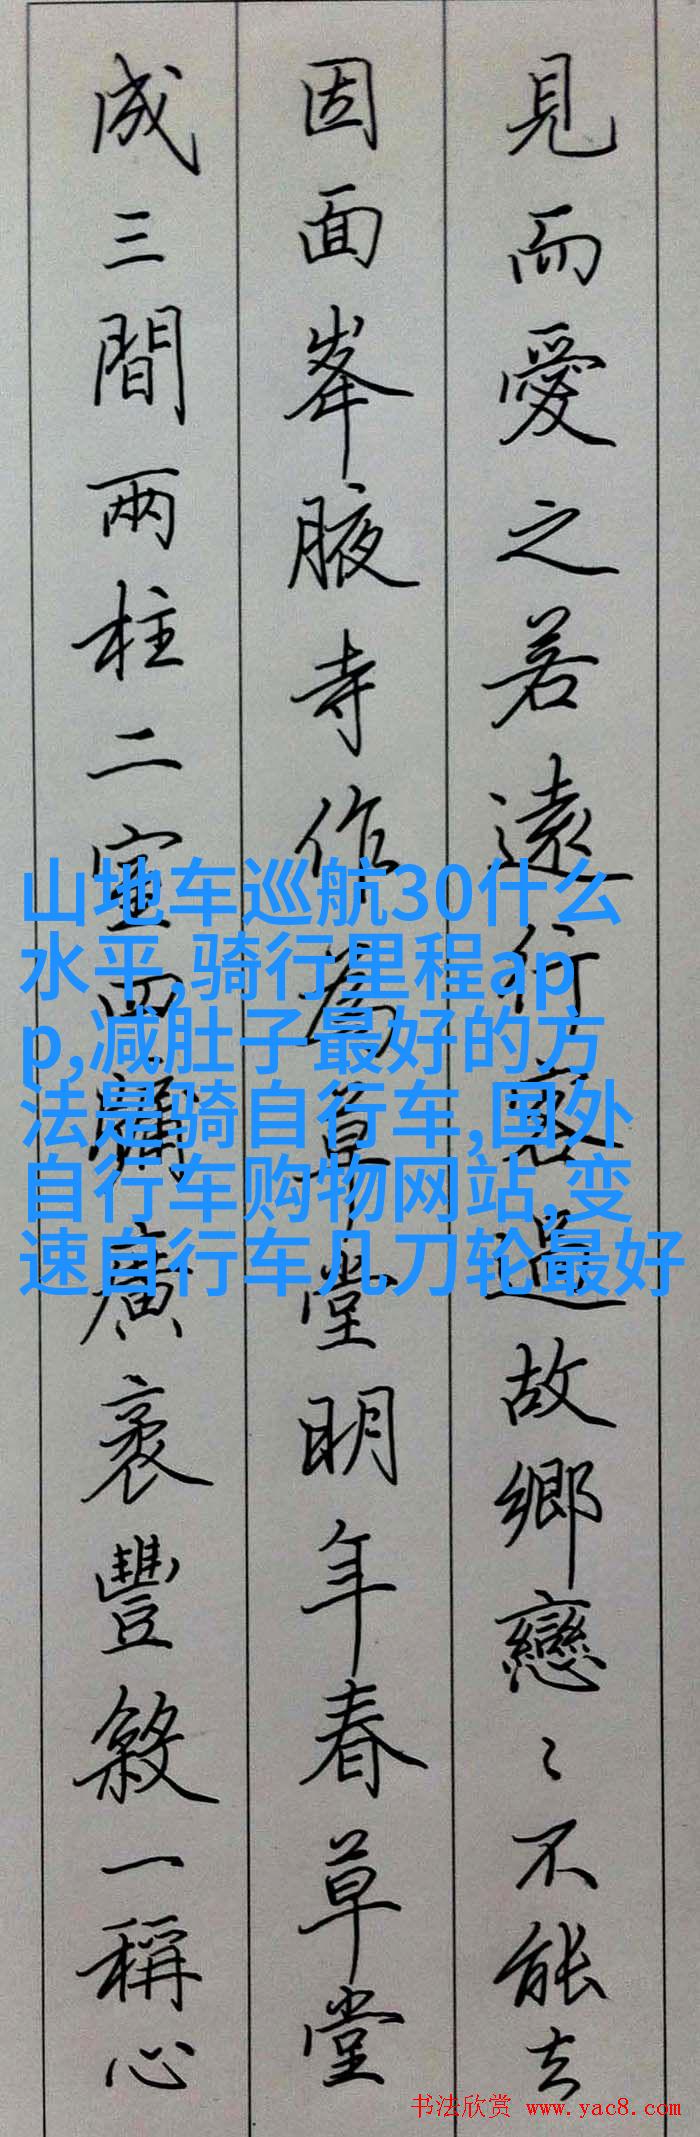 見而愛之若遠行客過故鄉戀〻不能去
因面峯腋寺作為草堂明年春草堂
成三間兩柱二室四牖廣袤豐殺一稱心
山地车巡航30什么
水平,骑行里程ap
p,减肚子最好的方
法是骑自行车,国外
自行车购物网站,变
速自行车几刀轮最好
书法欣赏 www.yac8.com